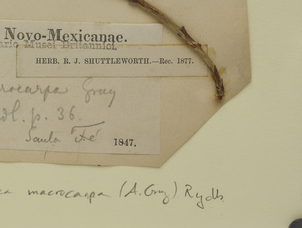 Novo-Mexicanae.
Musei Britannici.
HERB. R. J. SHUTTLEWORTH.—Rec. 1877.
Gray
p. 36.
Santa Fé
1847.
macrocarpa (A. Gray) Rydb